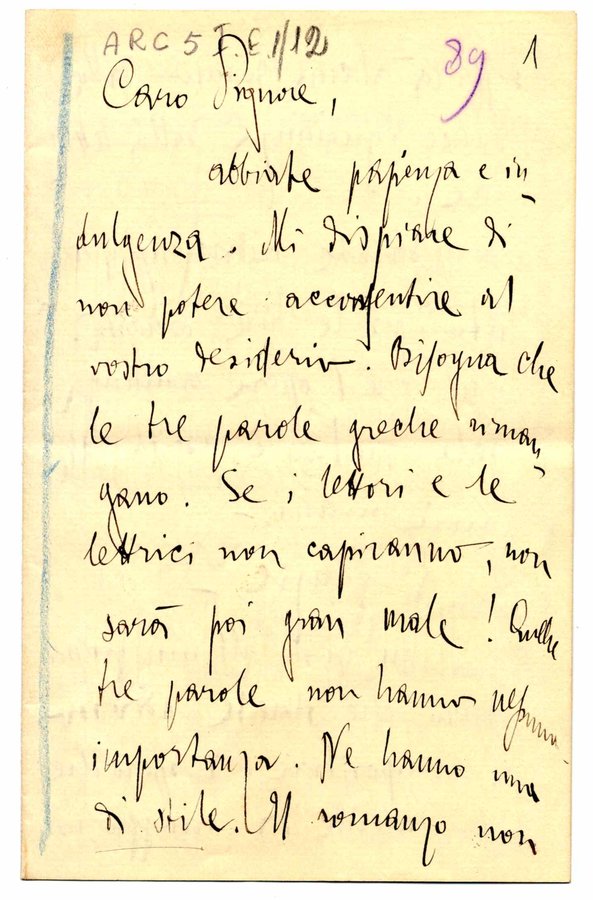 ARC 5 I. E. 1/12
89 1
Caro Signore,
abbiate pazienza e in-
dulgenza. Mi dispiace di
non potere acconsentire al
vostro desiderio. Bisogna che
le tre parole greche riman-
gano. Se i lettori e le
lettrici non capiranno, non
sarà poi gran male! Quelle
tre parole non hanno nessuna
importanza. Ne hanno una
di stile. Il romanzo non